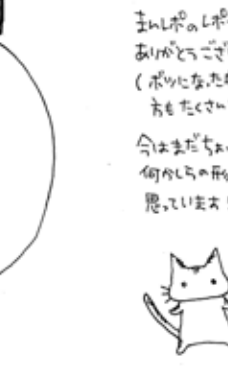 まんレポのレポ
ありがとうござ
(ボツになったネ
方もたくさん
今はまだちょ
何かしらの形
思っています!